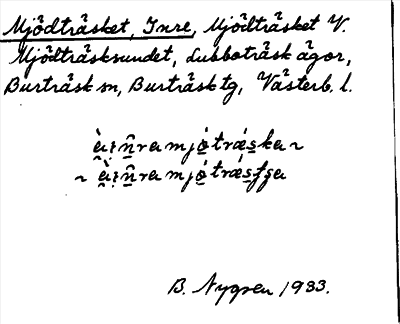 Mjödträsket, Inre, Mjödträsket V.
Mjödträsksundet, Lubboträsk ägor,
Burträsk sn, Burträsk tg, Västerb. l.
mjọ́trǽska ~
~
B. Nygren 1933.